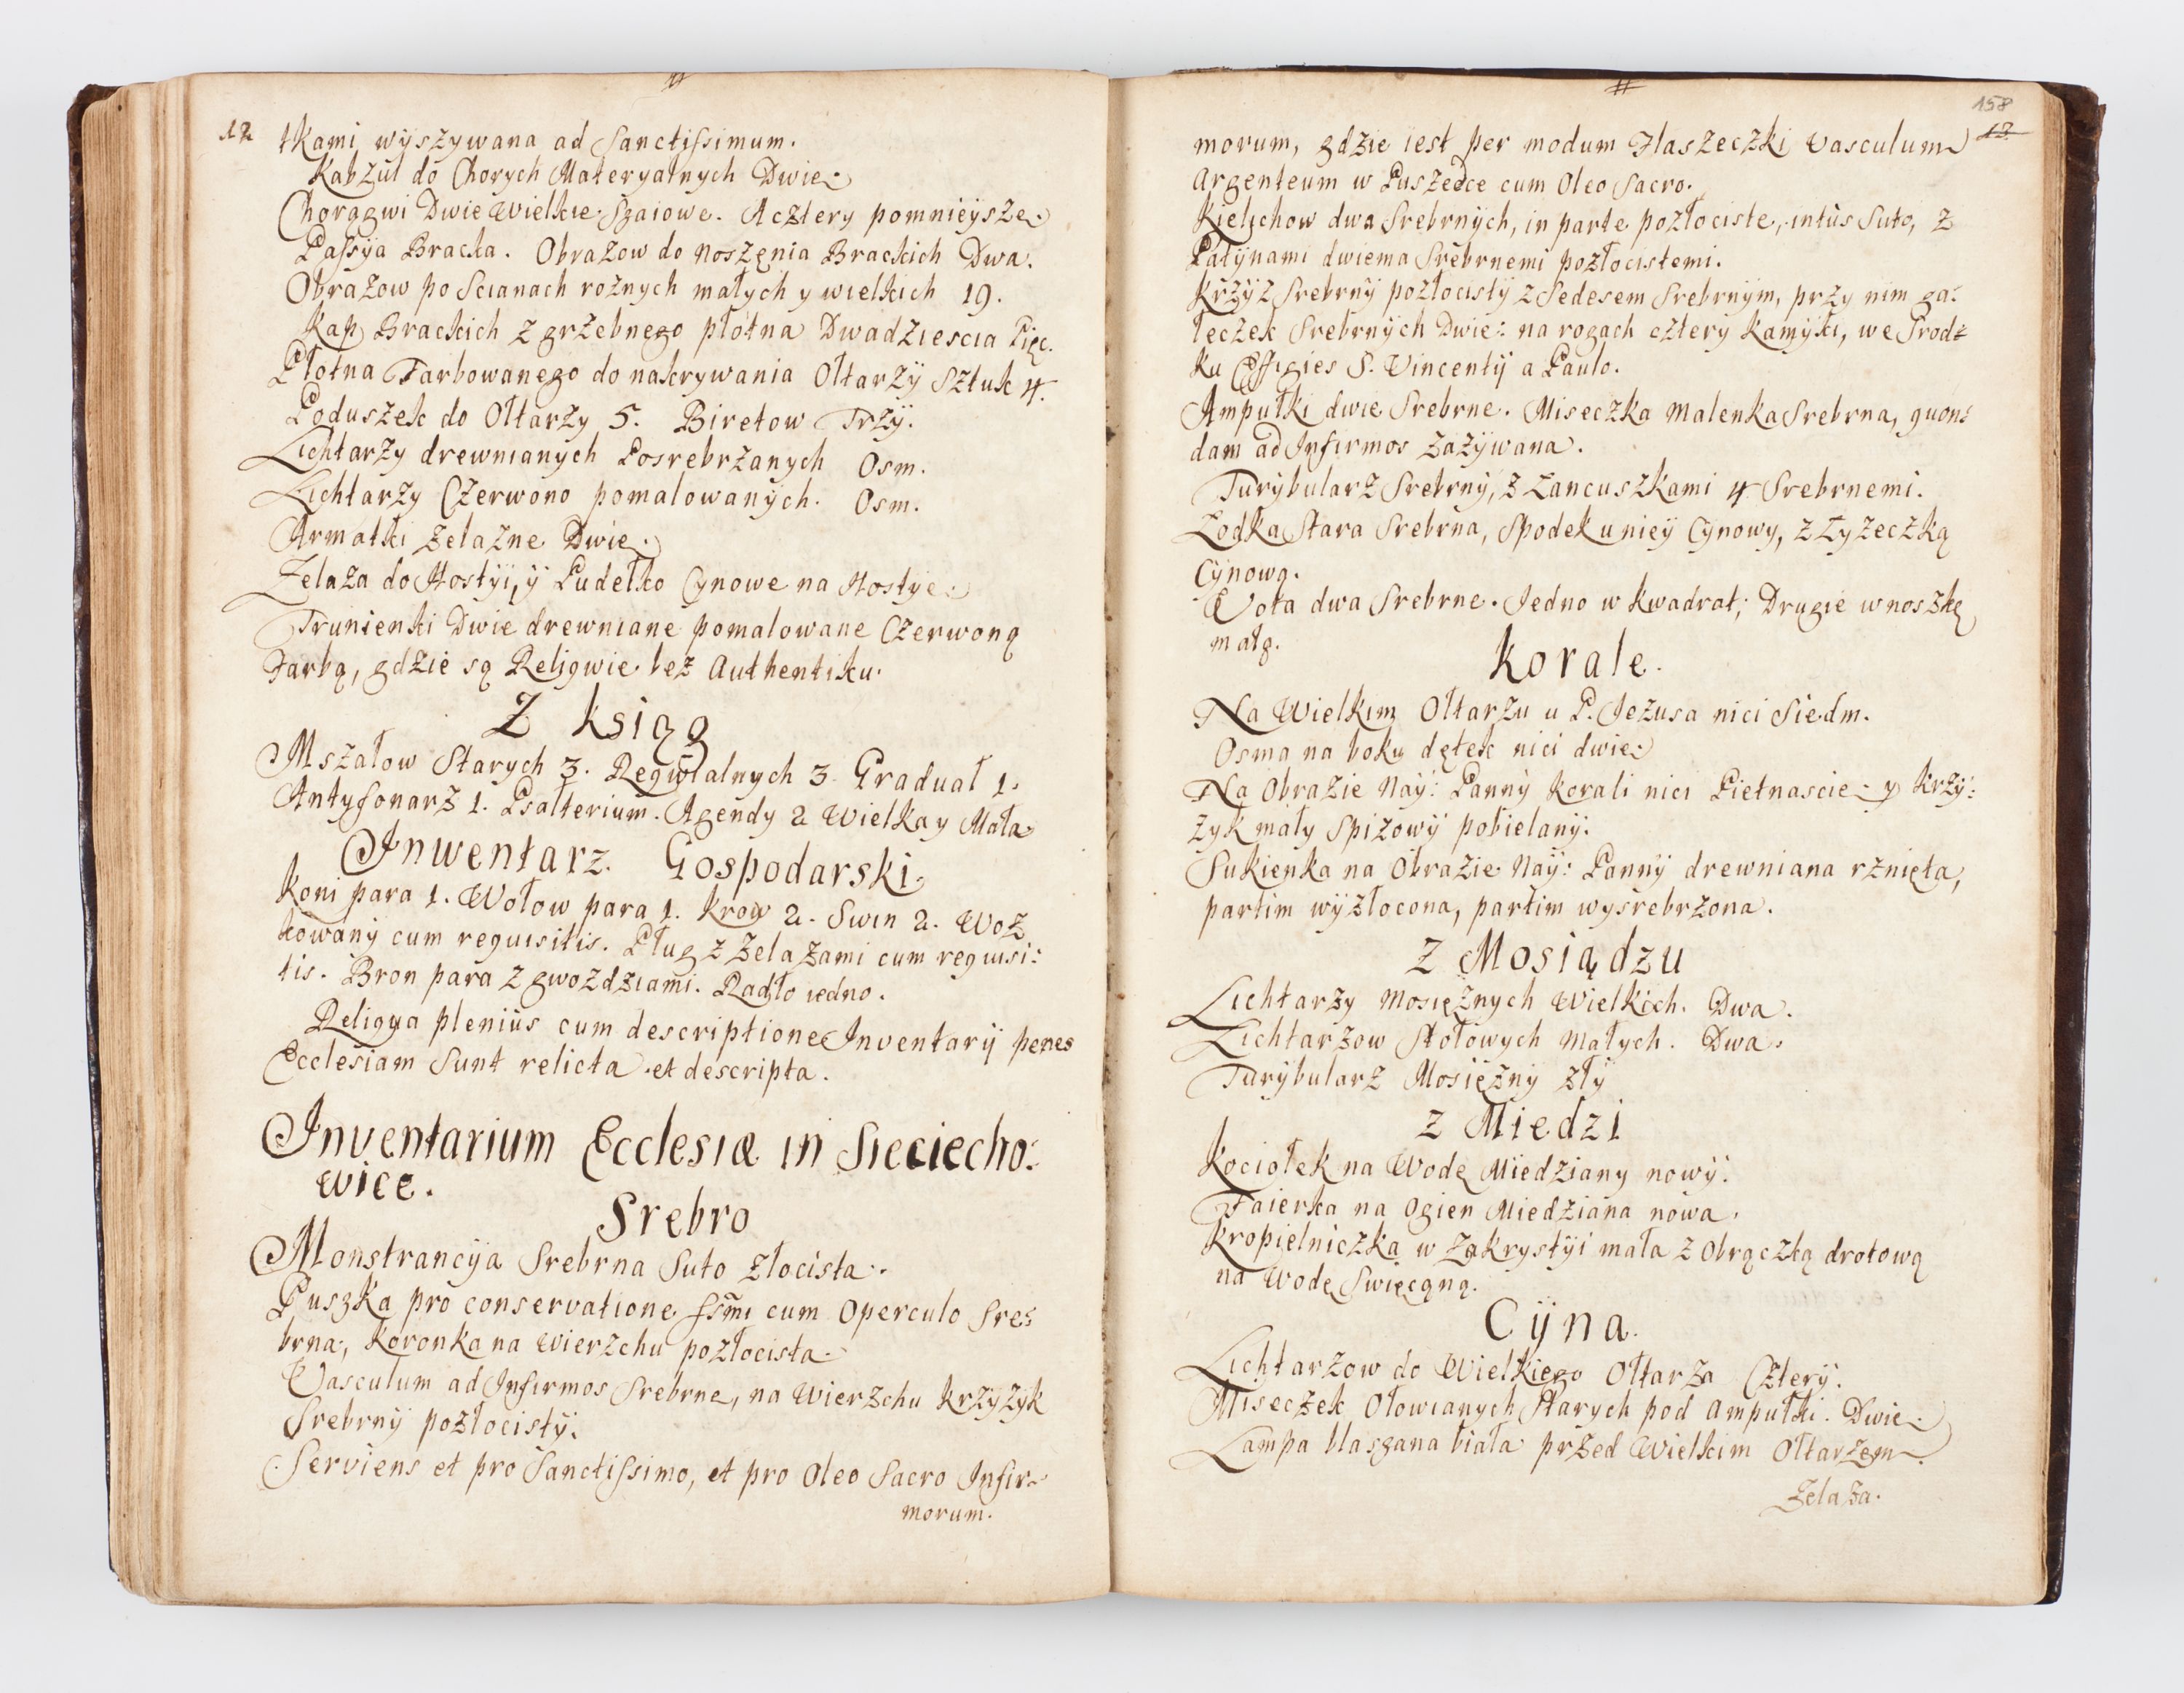 12
tkami wyszywana ad Sanctissimum.
Kabzul do Chorych Materyalnych Dwie.
Chorągwi Dwie Wielkie Szaiowe. A cztery pomnieysze.
Passÿa Bracka. Obrazow do noszęnia Brackich Dwa.
Obrazow po Scianach rożnych małych y wielkich 19.
Kap Brackich z grzebnego płotna Dwadziescia Pięc.
Płotna Farbowanego do nakrywania Ołtarzÿ Sztuk 4.
Poduszek do Ołtarzy 5. Biretow Trzÿ.
Lichtarzy drewnianych Posrebrzanych Osm.
Lichtarzy Czerwono pomalowanÿch. Osm.
Armatki żelazne Dwie.
Żelaza do Hostÿi, ÿ Pudełko Cynowe na Hostye.
Trunienki Dwie drewniane pomalowane Czerwoną
Farbą, gdzie są Religwie bez Authentiku.
Z ksiąg
Mszałow Starych 3. Reqwialnych 3. Graduał 1.
Antyfonarz 1. Psalterium. Agendy 2 Wielka y Mała
Inwentarz Gospodarski.
Koni para 1. Wołow para 1. Krow 2. Swin 2. Woz
kowanÿ cum requisitis. Pług z żelazami cum requisi:
tis. Bron para z gwozdziami. Radło iedno.
Reliqua pleniùs cum descriptione Inventarij penes
Ecclesiam Sunt relicta et descripta.
Inventarium Ecclesiæ in Sieciecho:
wice.
Srebro
Monstrancÿa Srebrna Suto złocista.
Puszka pro conservatione SSmi cum Operculo Sre:
brna, koronka na Wierzchu pozłocista.
Vasculum ad Infirmos Srebrne, na Wierzchu krzyżyk
Srebrnÿ pozłocistÿ.
Serviens et pro Sanctissimo, et pro Oleo Sacro Infir-
morum.
158
13
morum, gdzie iest per modum Flaszeczki Vasculum
Argenteum w Puszedce cum Oleo Sacro.
Kielichow dwa Srebrnÿch, in parte pozłociste, intùs Suto, z
Patÿnami dwiema Srebrnemi pozłocistemi.
Krzÿż Srebrnÿ pozłocistÿ z Sedesem Srebrnÿm, przy nim ga:
łeczek Srebrnÿch Dwie: na rogach cztery kamÿki, we Srod:
ku Effigies S. Vincentij a Paulo.
Ampułki dwie Srebrne. Miseczka malenka Srebrna, quon:
dam ad Infirmos zażÿwana.
Turÿbularz Srebrnÿ, z Łancuszkami 4 Srebrnemi.
Łodka Stara Srebrna, Spodek u nieÿ Cÿnowy, z Łyżeczką
Cÿnową.
Vota dwa Srebrne. Jedno w kwadrat; Drugie w noszkę
małą.
Korale.
Na Wielkim Ołtarzu u P. Jezusa nici Siedm.
Osma na boku dętek nici dwie.
Na Obrazie Naÿ: Pannÿ korali nici Pietnascie. y krzÿ:
żyk mały Spiżowÿ pobielanÿ.
Sukienka na Obrazie Naÿ: Pannÿ drewniana rznięta,
partim wÿzłocona, partim wysrebrzona.
Z Mosiądzu
Lichtarzy Mosiężnych Wielkich. Dwa.
Lichtarzow Stołowych małych. Dwa.
Turÿbularz Mosiężnÿ złÿ
Z Miedzi
Kociołek na Wodę Miedziany nowÿ.
Faierka na Ogien Miedziana nowa.
Kropielniczka w Zakrystÿi mała z Obrączką drotową
na Wodę Swięcąną.
Cÿna.
Lichtarzow do Wielkiego Ołtarza Czterÿ.
Miseczek Ołowianych Starych pod ampułki. Dwie.
Lampa blaszana biała przed Wielkim Ołtarzem.
Żelaza.